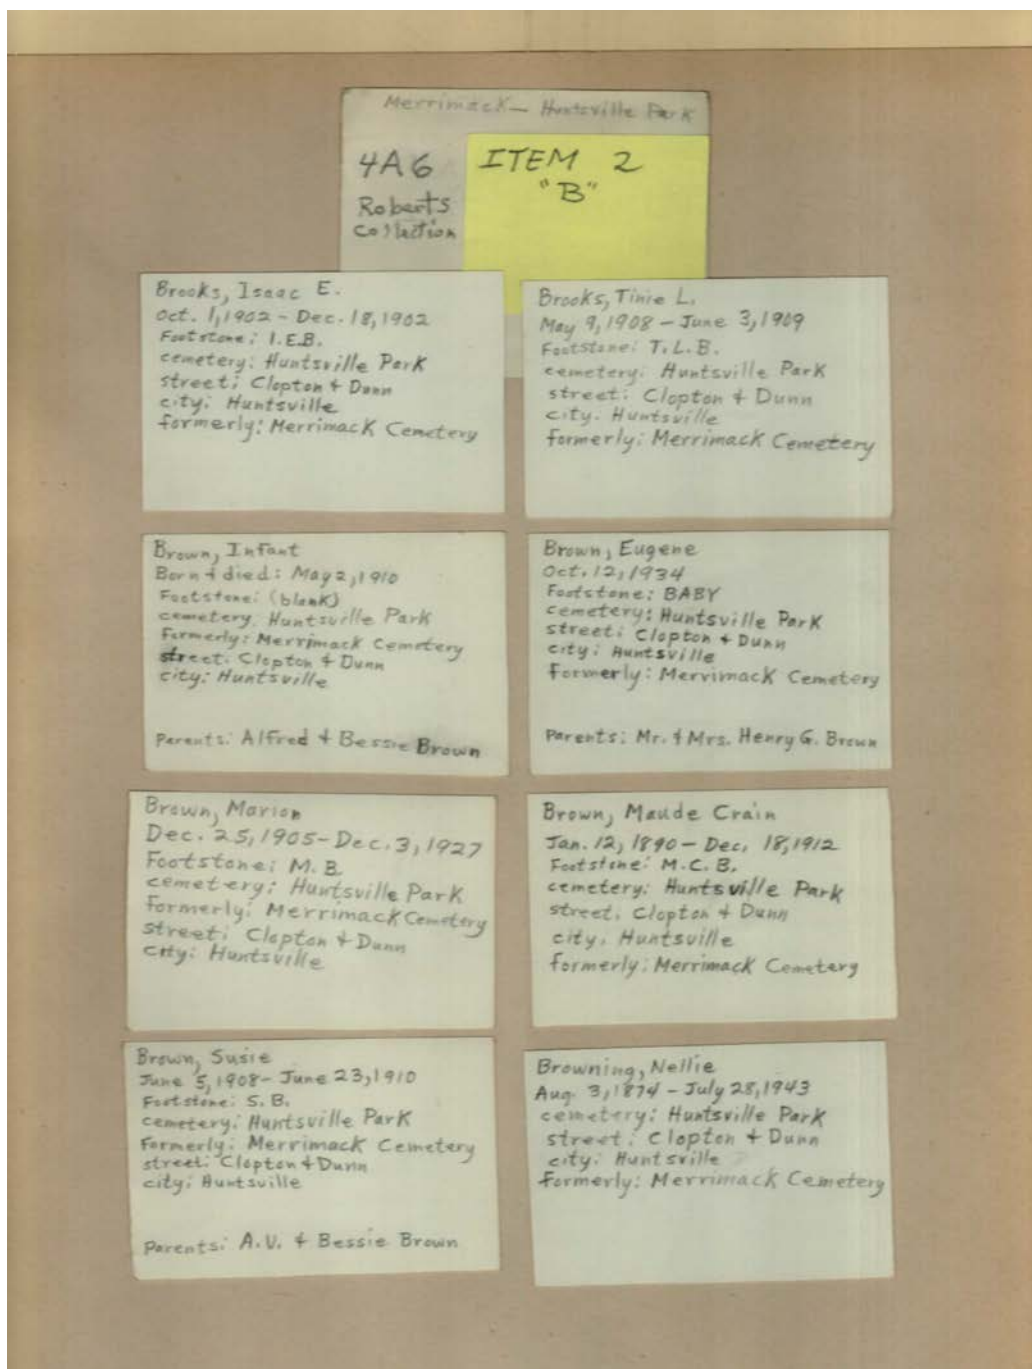 Merrimack - Huntsville Park
4A6
Roberts
Collection
ITEM 2
"B"
Brooks, Isaac E.
Oct. 1, 1902 - Dec. 18, 1902
Footstone: I.E.B.
cemetery: Huntsville Park
street: Clopton + Dunn
city: Huntsville
formerly: Merrimack Cemetery
Brooks, Tinie L.
May 9, 1908 - June 3, 1909
Footstone: T.L.B.
cemetery: Huntsville Park
street: Clopton + Dunn
city. Huntsville
formerly: Merrimack Cemetery
Brown, Infant
Born + died: May 2, 1910
Footstone: (blank)
cemetery: Huntsville Park
formerly: Merrimack Cemetery
street: Clopton + Dunn
city: Huntsville
Parents: Alfred + Bessie Brown
Brown, Eugene
Oct. 12, 1934
Footstone: BABY
cemetery: Huntsville Park
street: Clopton + Dunn
city: Huntsville
formerly: Merrimack Cemetery
Parents: Mr. + Mrs. Henry G. Brown
Brown, Marion
Dec. 25, 1905 - Dec. 3, 1927
Footstone: M.B.
cemetery: Huntsville Park
formerly: Merrimack Cemetery
street: Clopton + Dunn
city: Huntsville
Brown, Maude Crain
Jan. 12, 1890 - Dec. 18, 1912
Footstone: M.C.B.
cemetery: Huntsville Park
street: Clopton + Dunn
city: Huntsville
formerly: Merrimack Cemetery
Brown, Susie
June 5, 1908 - June 23, 1910
Footstone: S.B.
cemetery: Huntsville Park
formerly: Merrimack Cemetery
street: Clopton + Dunn
city: Huntsville
Parents: A.V. + Bessie Brown
Browning, Nellie
Aug. 3, 1874 - July 28, 1943
cemetery: Huntsville Park
street: Clopton + Dunn
city: Huntsville
formerly: Merrimack Cemetery